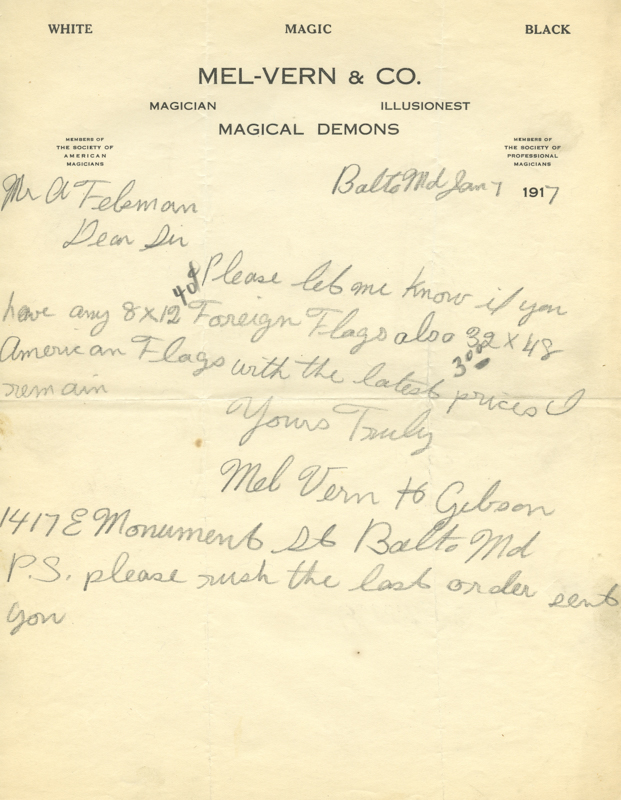 WHITE MAGIC BLACK
MEL-VERN & CO.
MAGICIAN ILLUSIONEST
MAGICAL DEMONS
MEMBERS OF
THE SOCIETY OF
AMERICAN
MAGICIANS
MEMBERS OF
THE SOCIETY OF
PROFESSIONAL
MAGICIANS
Balto Md Jan 7 1917
Mr A Felsman
Dear Sir
Please let me know if you
40¢
have any 8x12 Foreign Flags also 32 x 48
American Flags with the latest prices I
300
remain
Yours Truly
Mel Vern H Gibson
1417 E Monument St Balto Md
P.S. please rush the last order sent
you